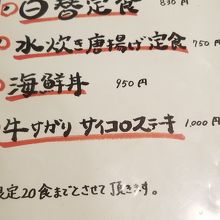 日替定食 830円
水炊き唐揚げ定食 750円
海鮮丼 950円
牛すがり サイコロステーキ 1,000円
限定20食までとさせて頂きます。